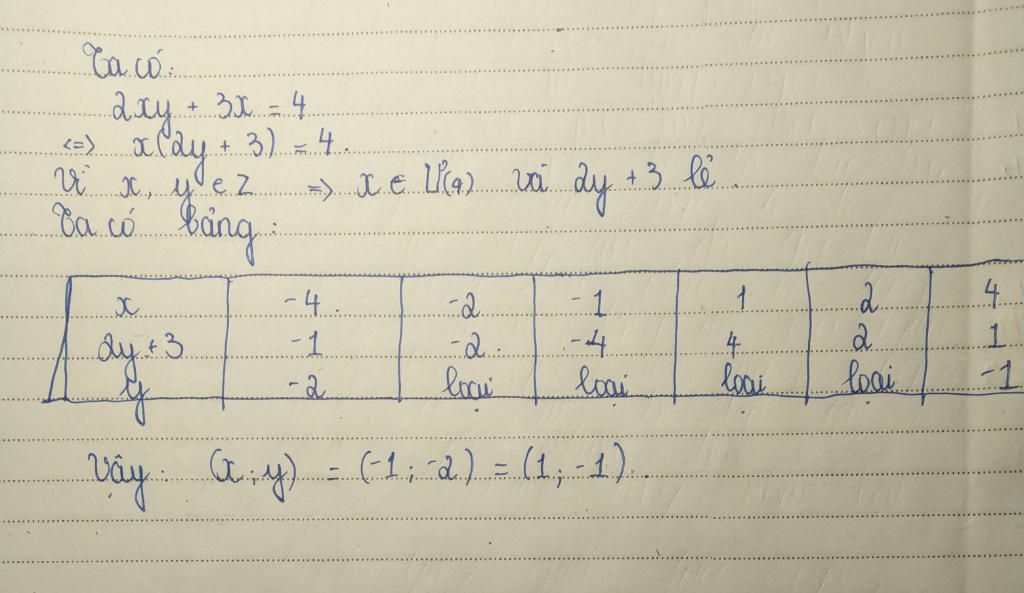 Ta có:
2xy + 3x = 4
<=> x(2y + 3) = 4.
Vì x, y ∈ Z => x ∈ Ư(4) và 2y + 3 lẻ.
Ta có bảng:
x -4. -2 -1 1 2 4
2y + 3 -1 -2. -4 4 2 1
y -2 loại loại loại loại -1
Vậy: (x; y) = (-1; -2) = (1; -1).